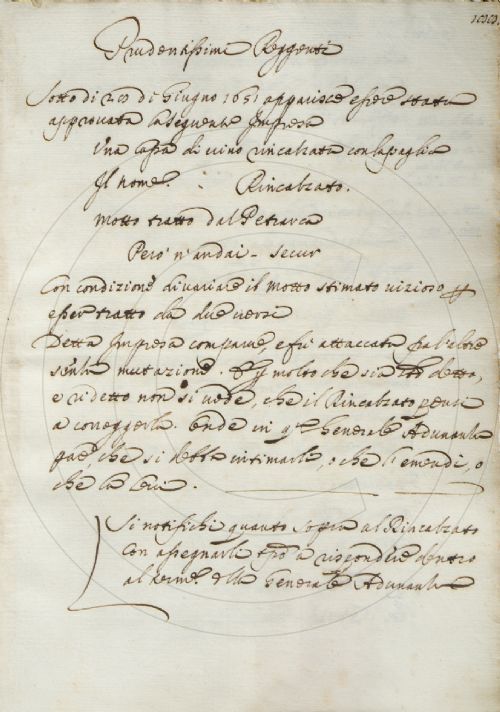 Prudentissimi Reggenti
Sotto di 20 di Giugno 1651 apparisce essere stata
approvata la seguente Impresa
Una cassa di vino rincalzata con la paglia
Il nome. Rincalzato.
Motto tratto dal Petrarca
Però n'andai - secur
Con condizione di variare il motto stimato vizioso
esser tratto da due versi
Detta Impresa comparve, e fu attaccata fra l'altre
senza mutazione. molto che sia detto,
e ridetto non si vede, che il Rincalzato pensi
a correggerla. Onde in Generale Adunanza
pare, che si debba intimarli, o che l'emendi, o
che la levi.
Si notifichi quanto sopra al Rincalzato
con assegnarli a rispondere dentro
al termine della Generale Adunanza